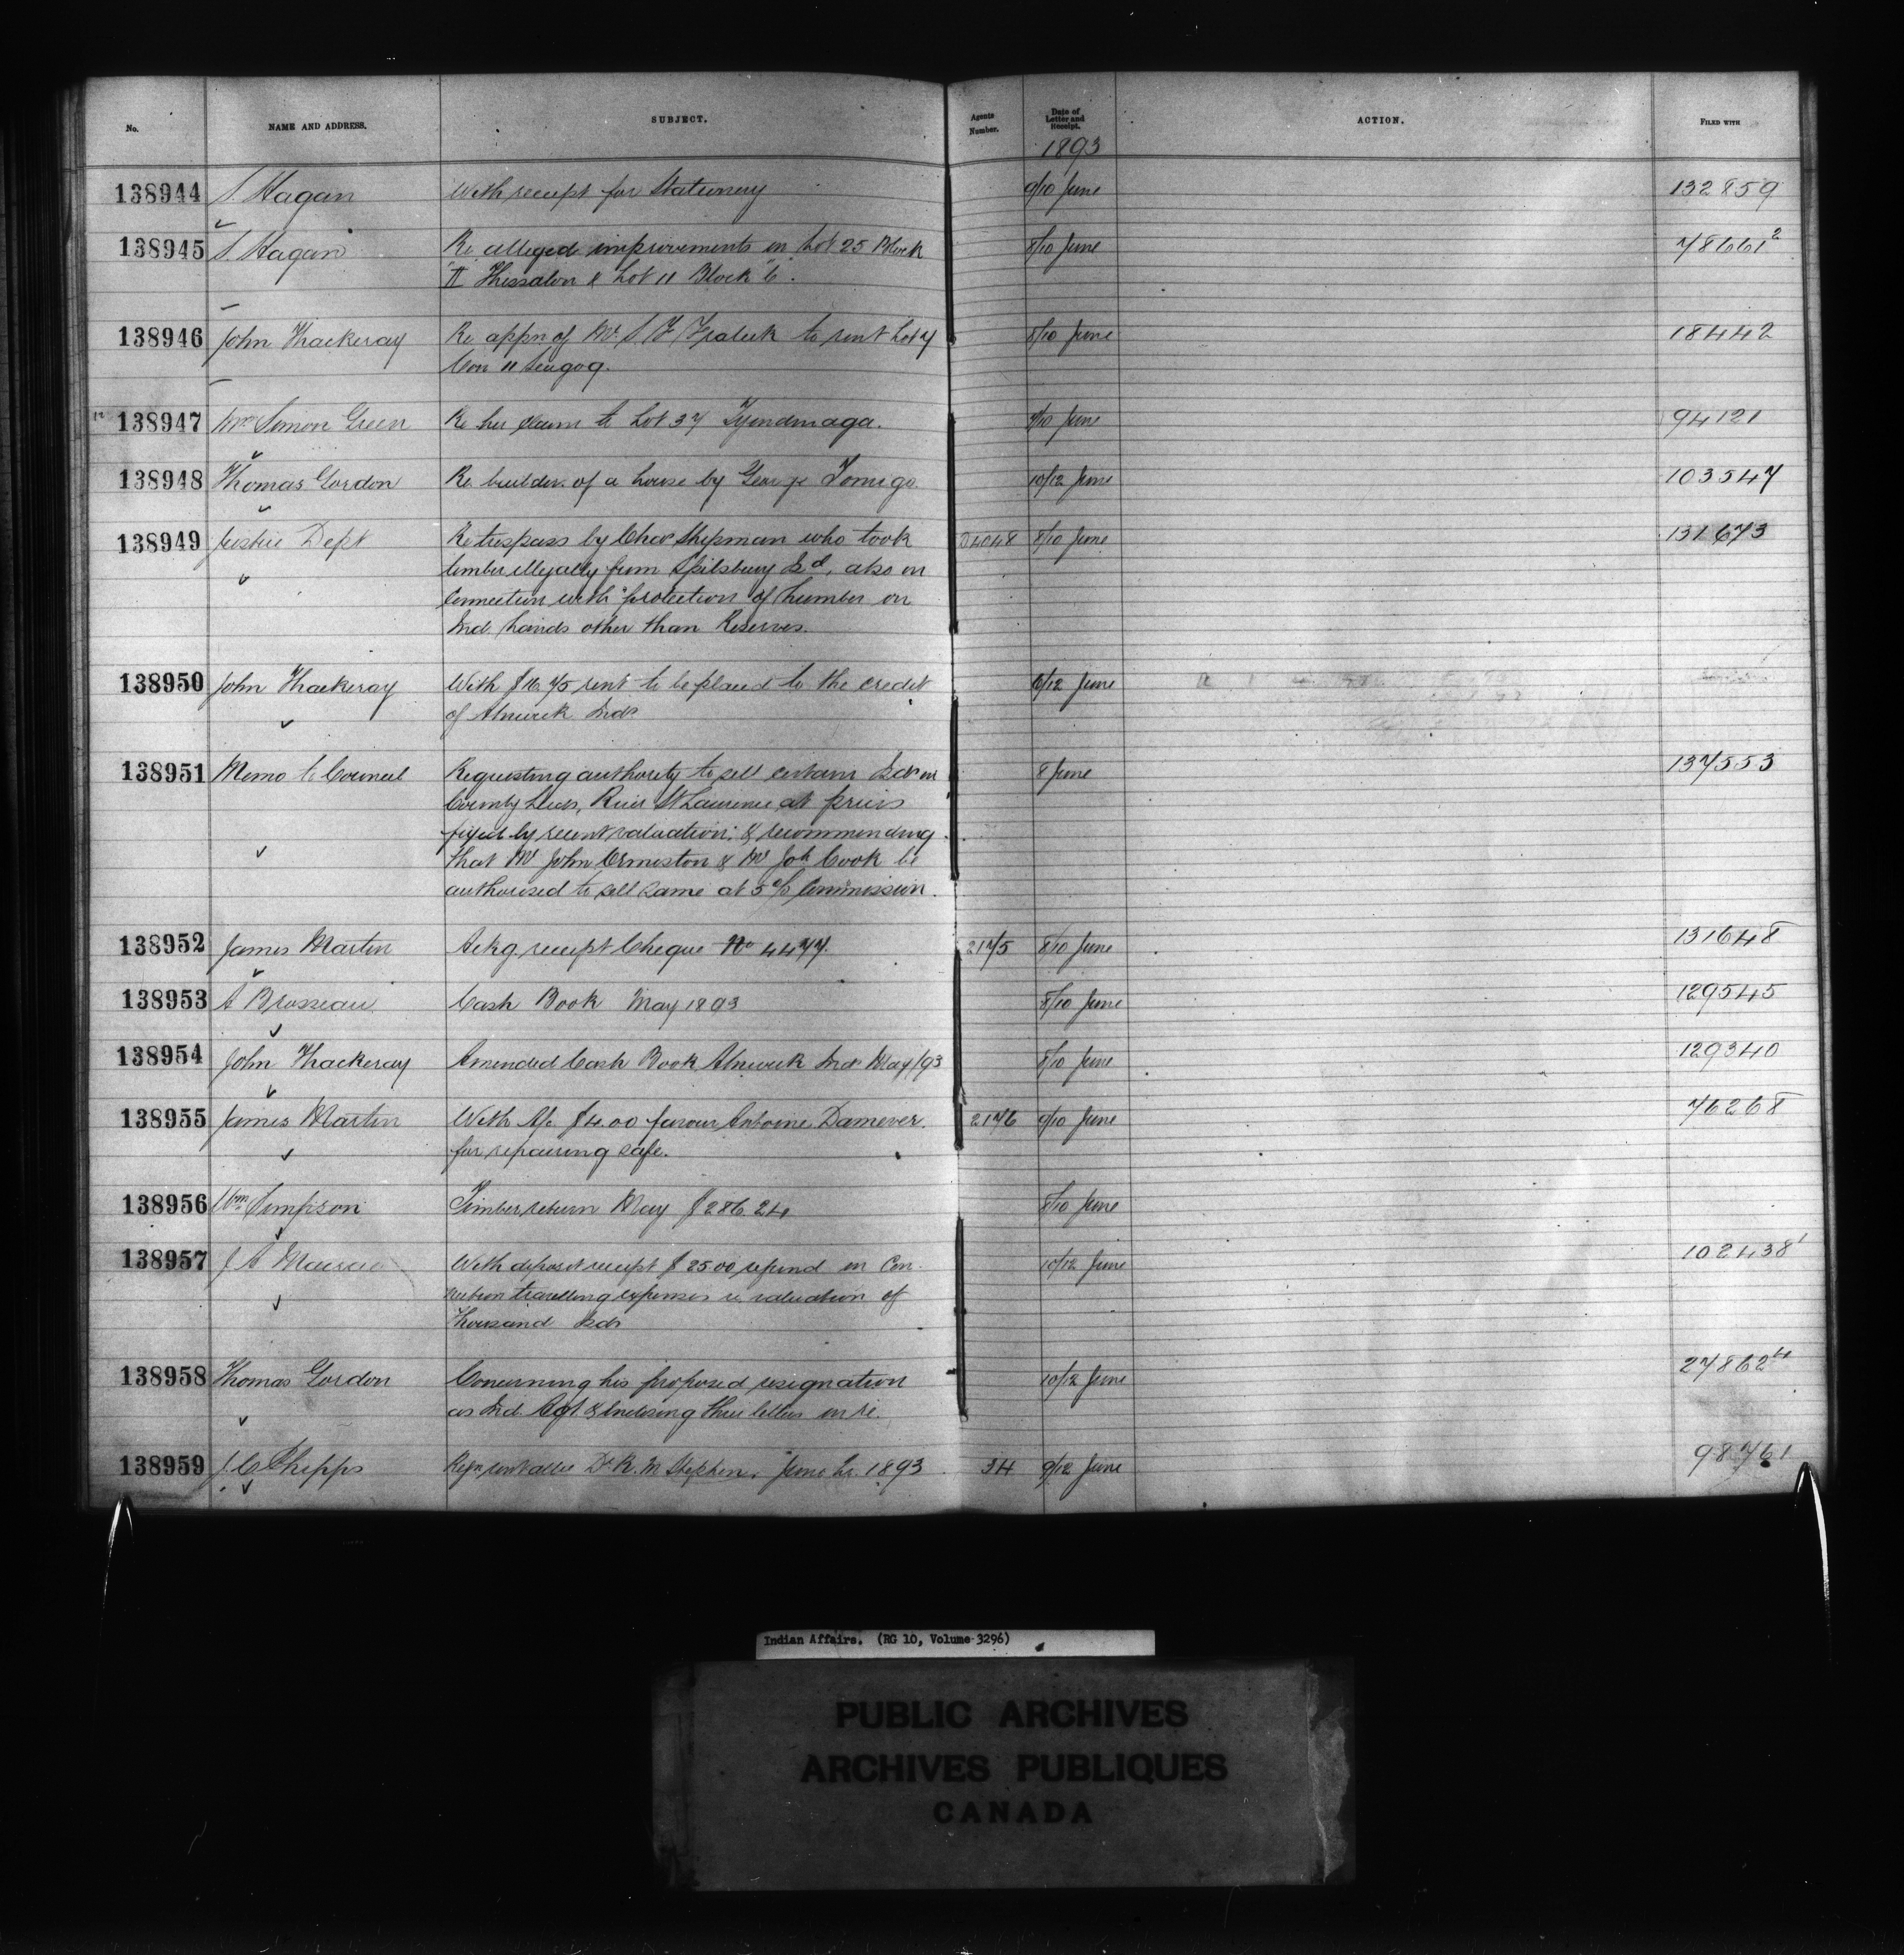 No. NAME AND ADDRESS. SUBJECT. Agents Number. Date of Letter and Receipt. ACTION. FILED WITH
1893
138944 S. Hagan With receipt for Stationery 9/10 June 132859
138945 S. Hagan Re alleged improvements on Lot 25 Block 8/10 June 78661²
"II" Thessalon & Lot 11 Block "6".
138946 John Thackeray Re appn of Mr. S F Fraleck to rent Lot 7 8/10 June 18442
Con 11 Seugog.
138947 Mrs Simon Green Re her claim to Lot 37 Tyendinaga. 9/10 June 94121
138948 Thomas Gordon Re builder. of a house by George Tomigo. 10/12 June 103547
138949 Justice Dept Re trespass by Chas Shipman who took D4048 8/10 June 131673
timber illegally from Spilsbury Isd, also in
Connection with protection of Lumber on
Ind. Lands other than Reserves.
138950 John Thackeray With $16.75 rent to be placed to the credit 6/12 June
of Alnwick Inds
138951 Memo to Council Requesting authority to sell certain Isds in 8 June 137553
County Leeds, River St Laurence at prices
fixed by recent valuation; & recommending
that Mr John Ormiston & Mr Joh Cook be
authorized to sell same at 5% Commission.
138952 James Martin Ackg. receipt Cheque No 4477. 2175 8/10 June 131648
138953 A Brosseau Cash Book May 1893 8/10 June 129545
138954 John Thackeray Amended Cash Book Alnwick Inds May/93 8/10 June 129340
138955 James Martin With A/c $4.00 favour Antoine Damever. 2176 9/10 June 76268
for repairing safe.
138956 Wm Simpson Timber return May $286.24 8/10 June
138957 J A Macrae With deposit receipt $25.00 refund in Con- 10/12 June 102438¹
nection travelling expenses re valuation of
Thousand Isds
138958 Thomas Gordon Concerning his proposed resignation 10/12 June 27862⁴
as Ind. Agt. & Enclosing three letters in re.
138959 J. C Phipps Dr R. M Stephen, June Qr. 1893 34 9/12 June 98761
Indian Affairs. (RG 10, Volume 3296)
PUBLIC ARCHIVES
ARCHIVES PUBLIQUES
CANADA